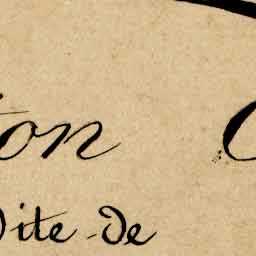 ton
dite de